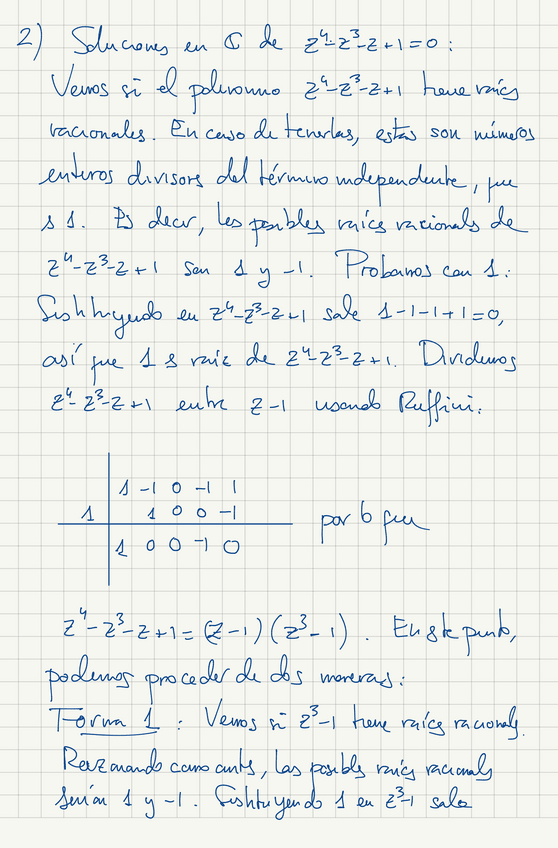 2) Soluciones en ℂ de z⁴-z³-z+1=0:
Vemos si el polinomio z⁴-z³-z+1 tiene raíces
racionales. En caso de tenerlas, estas son números
enteros divisores del término independente, que
es 1. Es decir, las posibles raíces racionales de
z⁴-z³-z+1 son 1 y -1. Probamos con 1:
Sustituyendo en z⁴-z³-z+1 sale 1-1-1+1=0,
así que 1 es raíz de z⁴-z³-z+1. Dividimos
z⁴-z³-z+1 entre z-1 usando Ruffini:
1 -1 0 -1 1
1 1 0 0 -1
1 0 0 -1 0
por lo que
z⁴-z³-z+1=(z-1)(z³-1). En este punto,
podemos proceder de dos maneras:
Forma 1: Vemos si z³-1 tiene raíces racionales.
Razonando como antes, las posibles raíces racionales
serían 1 y -1. Sustituyendo 1 en z³-1 sale